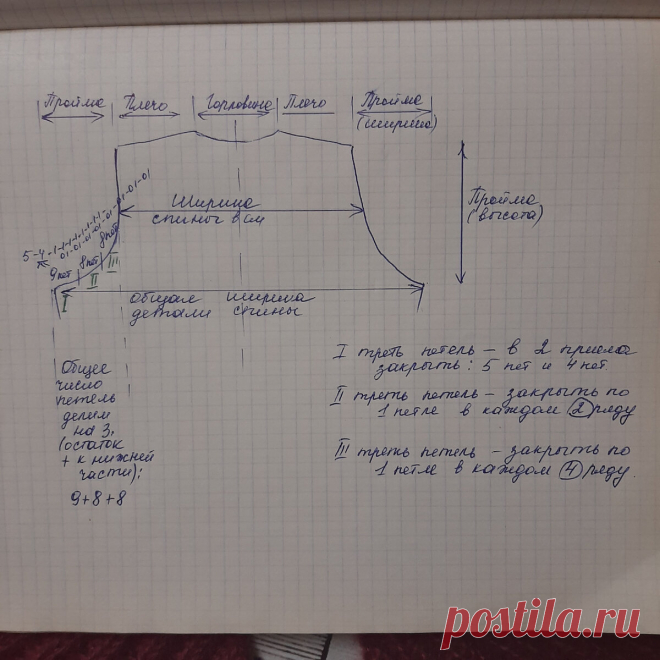 Пройма Плечо Горловина Плечо Пройма
(ширина)
Ширина
спины в см
Пройма
(высота)
5-4-1-1-1-1-1-1-1-1-
01-01-01-01-01-01-01-01
9 пет 8 пет 8 пет
I II III
Общая ширина
детали спины
Общее
число
петель
делим
на 3,
(остаток
+ к нижней
части):
9+8+8
I треть петель - в 2 приема
закрыть: 5 пет и 4 пет
II треть петель - закрыть по
1 петле в каждом 2 ряду
III треть петель - закрыть по
1 петле в каждом 4 ряду.
postila.ru